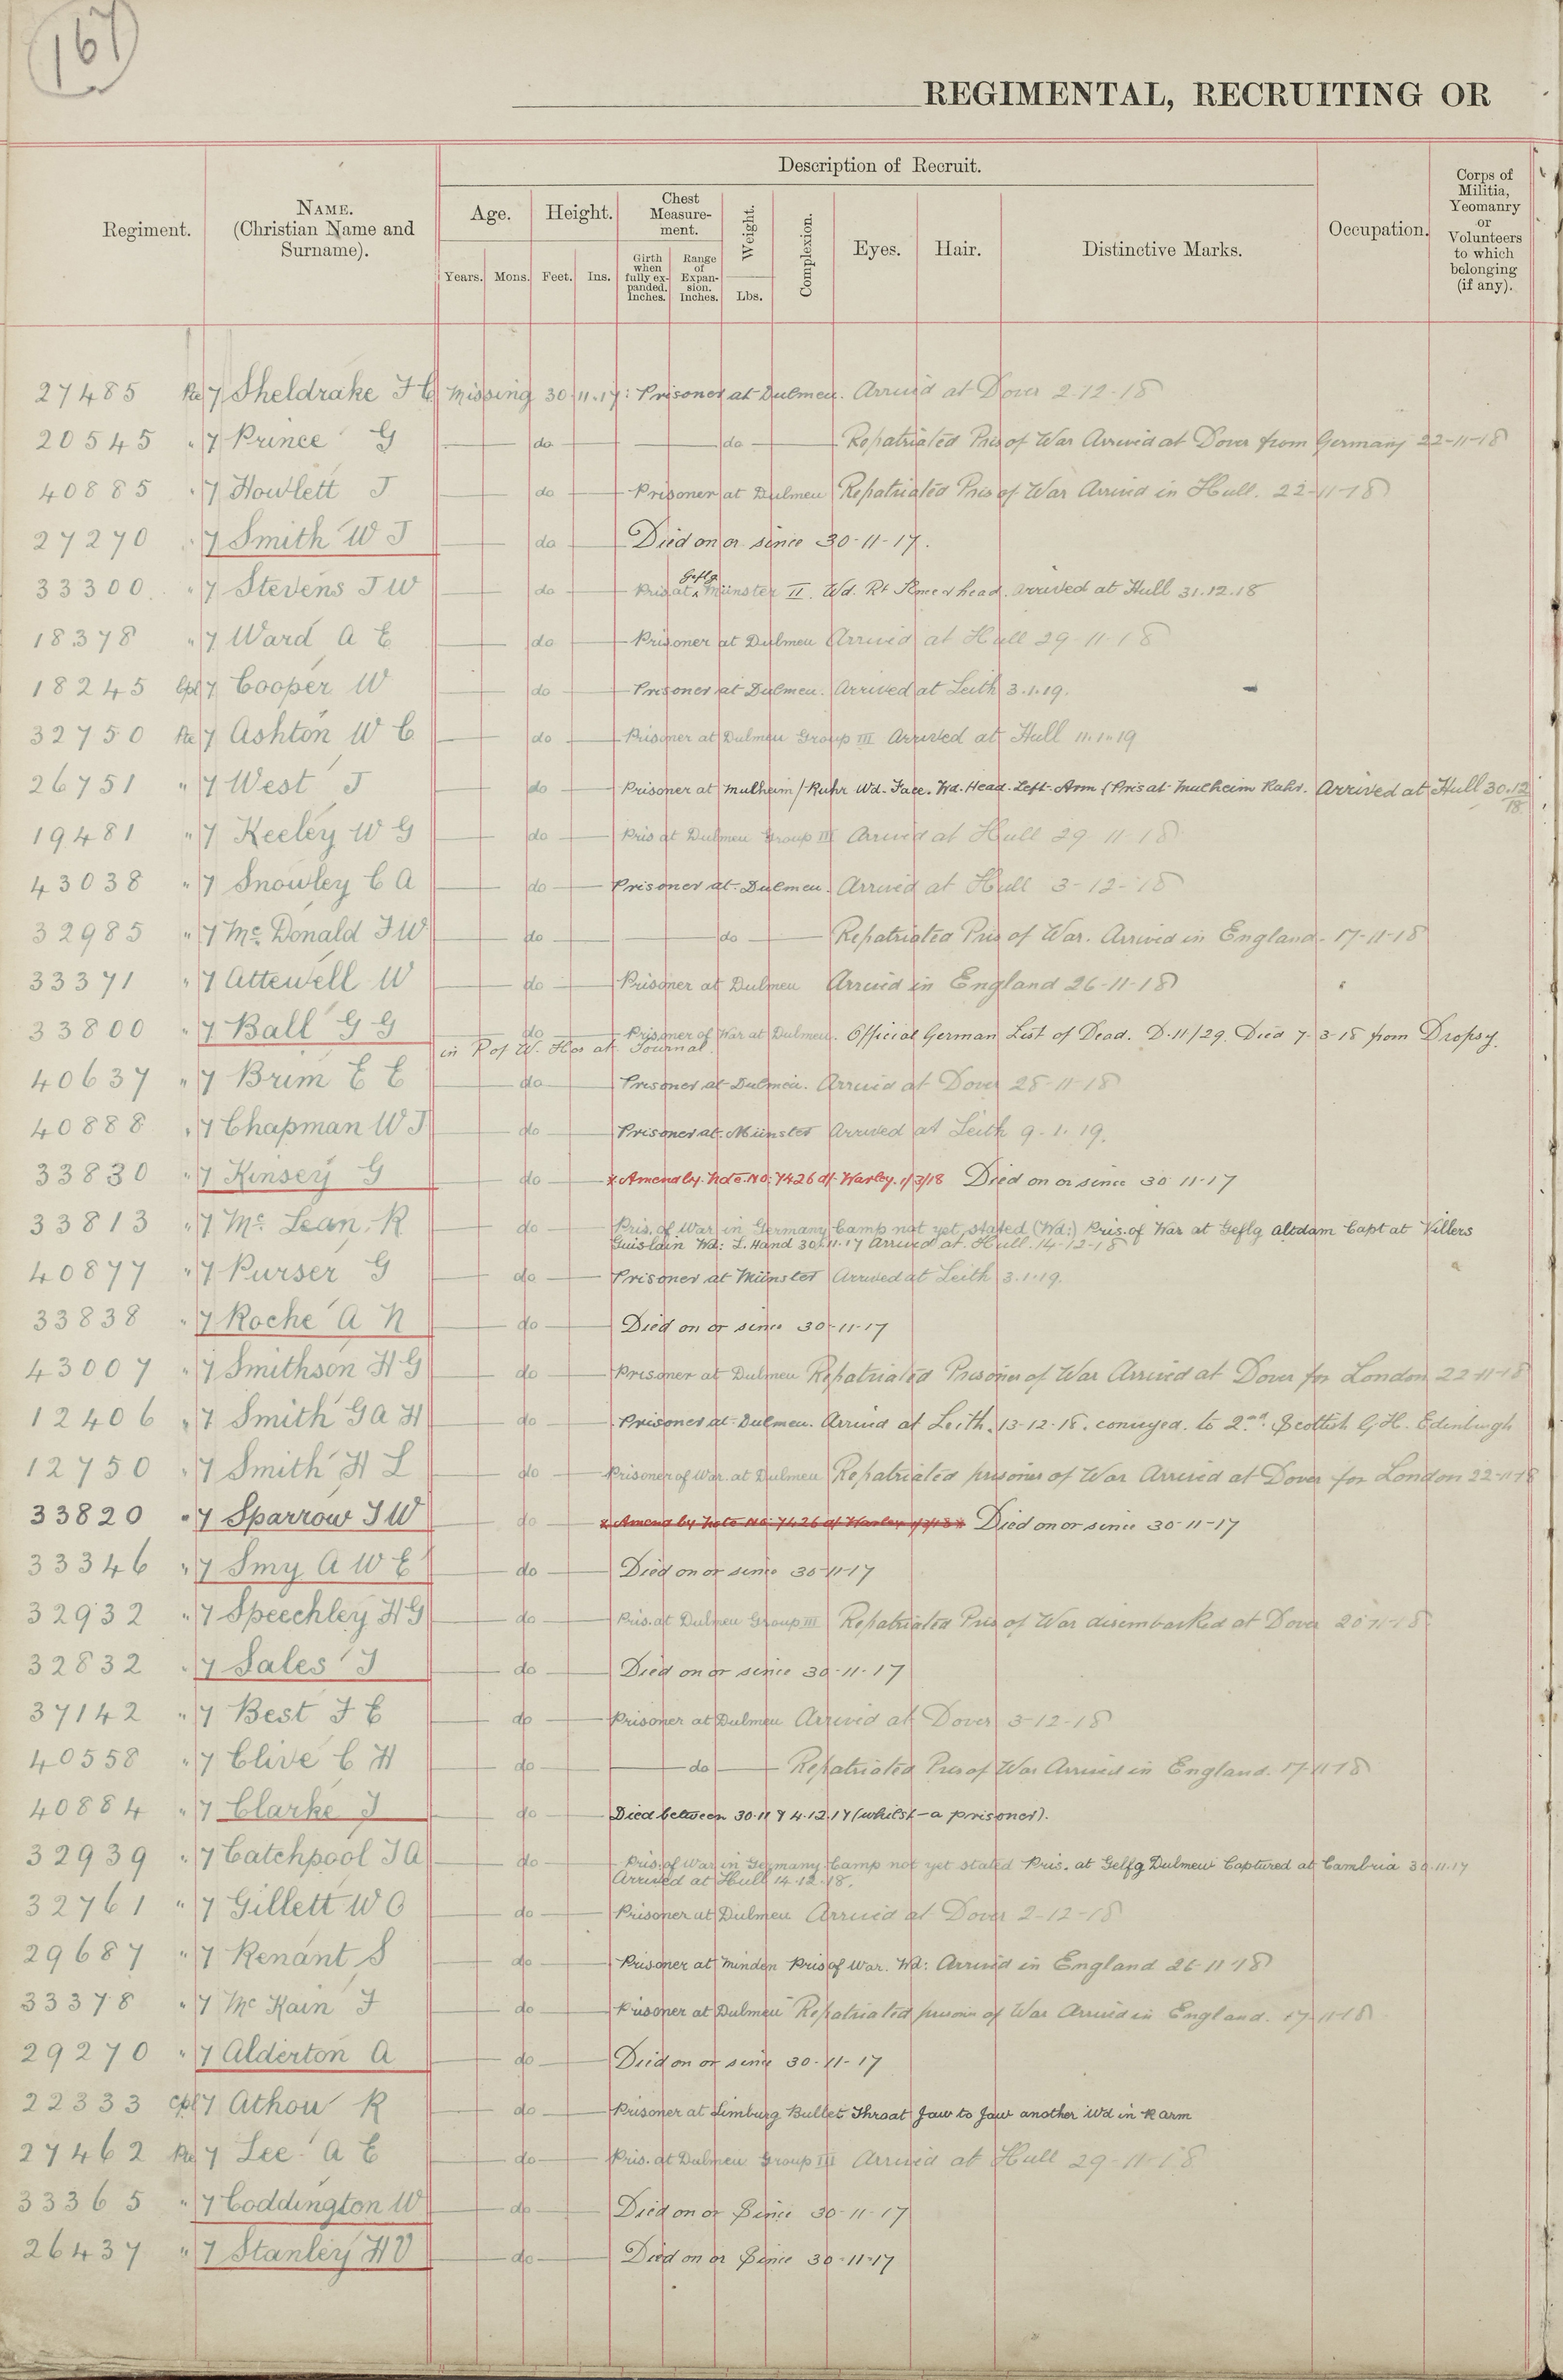 167
REGIMENTAL, RECRUITING OR
Regiment.
NAME.
(Christian Name and
Surname).
Description of Recruit.
Age.
Height.
Chest
Measure-
ment.
Weight.
Complexion.
Eyes.
Hair.
Distinctive Marks.
Occupation.
Corps of
Militia,
Yeomanry
or
Volunteers
to which
belonging
(if any).
Years.
Mons.
Feet.
Ins.
Girth
when
fully ex-
panded.
Inches.
Range
of
Expan-
sion.
Inches.
Lbs.
27485 Pte 7 Sheldrake F C Missing 30.11.17: Prisoner at Dulmen. Arrived at Dover 2-12-18
20545 " 7 Prince G do do Repatriated Pris of War Arrived at Dover from Germany 22-11-18
40885 " 7 Howlett J do Prisoner at Dulmen Repatriated Pris of War Arrived in Hull. 22-11-18
27270 " 7 Smith W J do Died on or since 30-11-17.
33300 " 7 Stevens J W do Pris at Geflg Münster II. Wd. Rt Arm & head. Arrived at Hull 31.12.18
18378 " 7 Ward A E do Prisoner at Dulmen Arrived at Hull 29-11-18
18245 Cpl 7 Cooper W do Prisoner at Dulmen. Arrived at Leith 3.1.19.
32750 Pte 7 Ashton W C do Prisoner at Dulmen Group III Arrived at Hull 11.1.19
26751 " 7 West J do Prisoner at Mulheim/Ruhr Wd. Face. Wd. Head. Left. Arm (Pris at Mulheim Ruhr. Arrived at Hull 30.12
18.
19481 " 7 Keeley W G do Pris at Dulmen Group III Arrived at Hull 29-11-18
43038 " 7 Snowley C A do Prisoner at Dulmen. Arrived at Hull 3-12-18
32985 " 7 Mc Donald F W do do Repatriated Pris of War. Arrived in England. 17-11-18
33371 " 7 Attewell W do Prisoner at Dulmen Arrived in England 26-11-18
33800 " 7 Ball G G do Prisoner of War at Dulmen. Official German List of Dead. D.11/29. Died 7-3-18 from Dropsy.
in P of W. Hos at Tournai.
40637 " 7 Brim E E do Prisoner at Dulmen. Arrived at Dover 28-11-18
40888 " 7 Chapman W J do Prisoner at Münster Arrived at Leith 9.1.19.
33830 " 7 Kinsey G do x Amend by. Note. No. 7426 d/- Warley. 1/3/18 Died on or since 30-11-17
33813 " 7 Mc Lean R do Pris. of War in Germany Camp not yet stated (Wd:) Pris. of War at Geflg Altdam Capt at Villers
Guislain Wd: L. Hand 30.11.17 Arrived at Hull. 14-12-18
40877 " 7 Purser G do Prisoner at Münster Arrived at Leith 3.1.19.
33838 " 7 Roche A N do Died on or since 30-11-17
43007 " 7 Smithson H G do Prisoner at Dulmen Repatriated Prisoner of War Arrived at Dover for London 22-11-18
12406 " 7 Smith G A H do Prisoner at Dulmen. Arrived at Leith. 13-12-18. conveyed. to 2nd. Scottish G.H. Edinburgh
12750 " 7 Smith H L do Prisoner of War. at Dulmen Repatriated prisoner of War Arrived at Dover for London 22-11-18
33820 " 7 Sparrow J W do x Amend by Note No. 7426 d/ Warley 1/3/18 x Died on or since 30-11-17
33346 " 7 Smy A W E do Died on or since 30-11-17
32932 " 7 Speechley H G do Pris. at Dulmen Group III Repatriated Pris of War disembarked at Dover 20-11-18
32832 " 7 Sales J do Died on or since 30-11-17
37142 " 7 Best F C do Prisoner at Dulmen Arrived at Dover 3-12-18
40558 " 7 Clive C H do do Repatriated Pris of War Arrived in England. 17-11-18
40884 " 7 Clarke J do Died between 30.11 & 4.12.17 (whilst a prisoner).
32939 " 7 Catchpool J A do Pris. of War in Germany Camp not yet stated Pris. at Gelfg Dulmen Captured at Cambria 30.11.17
Arrived at Hull 14.12.18.
32761 " 7 Gillett W O do Prisoner at Dulmen Arrived at Dover 2-12-18
29687 " 7 Renant S do Prisoner at Minden Pris of War. Wd: Arrived in England 26-11-18
33378 " 7 Mc Kain F do Prisoner at Dulmen Repatriated prisoner of War Arrived in England. 17-11-18
29270 " 7 Alderton A do Died on or since 30-11-17
22333 Cpl 7 Athow R do Prisoner at Limburg Bullet Throat Jaw to Jaw another Wd in R arm
27462 Pte 7 Lee A E do Pris. at Dulmen Group III Arrived at Hull 29-11-18
33365 " 7 Coddington W do Died on or Since 30-11-17
26437 " 7 Stanley H V do Died on or Since 30-11-17